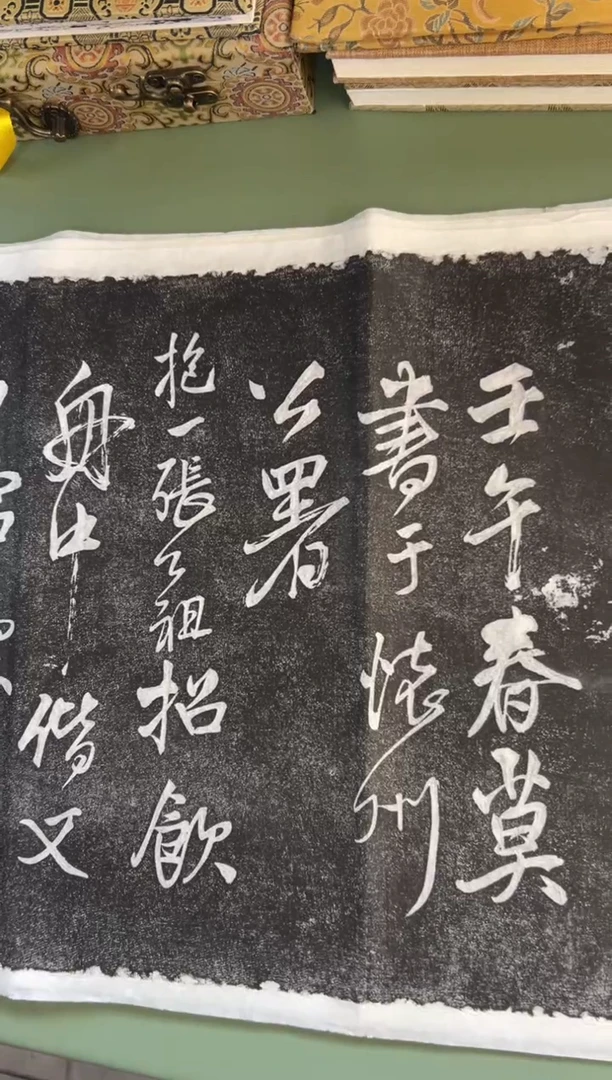 壬午春莫
書于懷州
公署
抱一張公祖招飲
舟中偕